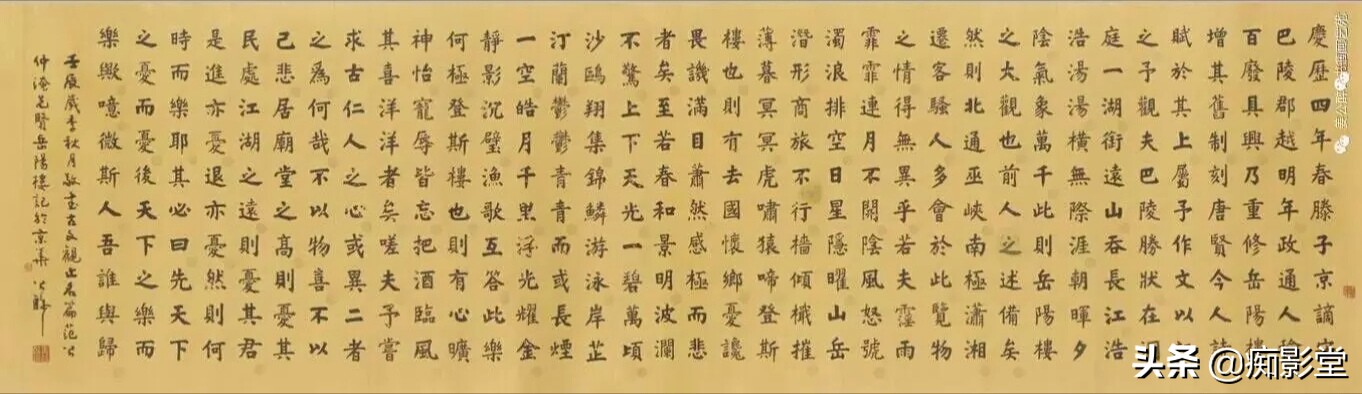 慶歷四年春滕子京謫守
巴陵郡越明年政通人和
百廢具興乃重修岳陽樓
增其舊制刻唐賢今人詩
賦於其上屬予作文以記
之予觀夫巴陵勝狀在洞
庭一湖銜遠山吞長江浩
浩湯湯橫無際涯朝暉夕
陰氣象萬千此則岳陽樓
之大觀也前人之述備矣
然則北通巫峽南極瀟湘
遷客騷人多會於此覽物
之情得無異乎若夫霪雨
霏霏連月不開陰風怒號
濁浪排空日星隱曜山岳
潛形商旅不行檣傾檝摧
薄暮冥冥虎嘯猿啼登斯
樓也則有去國懷鄉憂讒
畏譏滿目蕭然感極而悲
者矣至若春和景明波瀾
不驚上下天光一碧萬頃
沙鷗翔集錦鱗游泳岸芷
汀蘭鬱鬱青青而或長煙
一空皓月千里浮光耀金
靜影沉璧漁歌互答此樂
何極登斯樓也則有心曠
神怡寵辱皆忘把酒臨風
其喜洋洋者矣嗟夫予嘗
求古仁人之心或異二者
之為何哉不以物喜不以
己悲居廟堂之高則憂其
民處江湖之遠則憂其君
是進亦憂退亦憂然則何
時而樂耶其必曰先天下
之憂而憂後天下之樂而
樂歟噫微斯人吾誰與歸
壬辰歲季秋月敬書古文觀止名篇范公
仲淹先賢岳陽樓記於京華
头条 @痴影堂